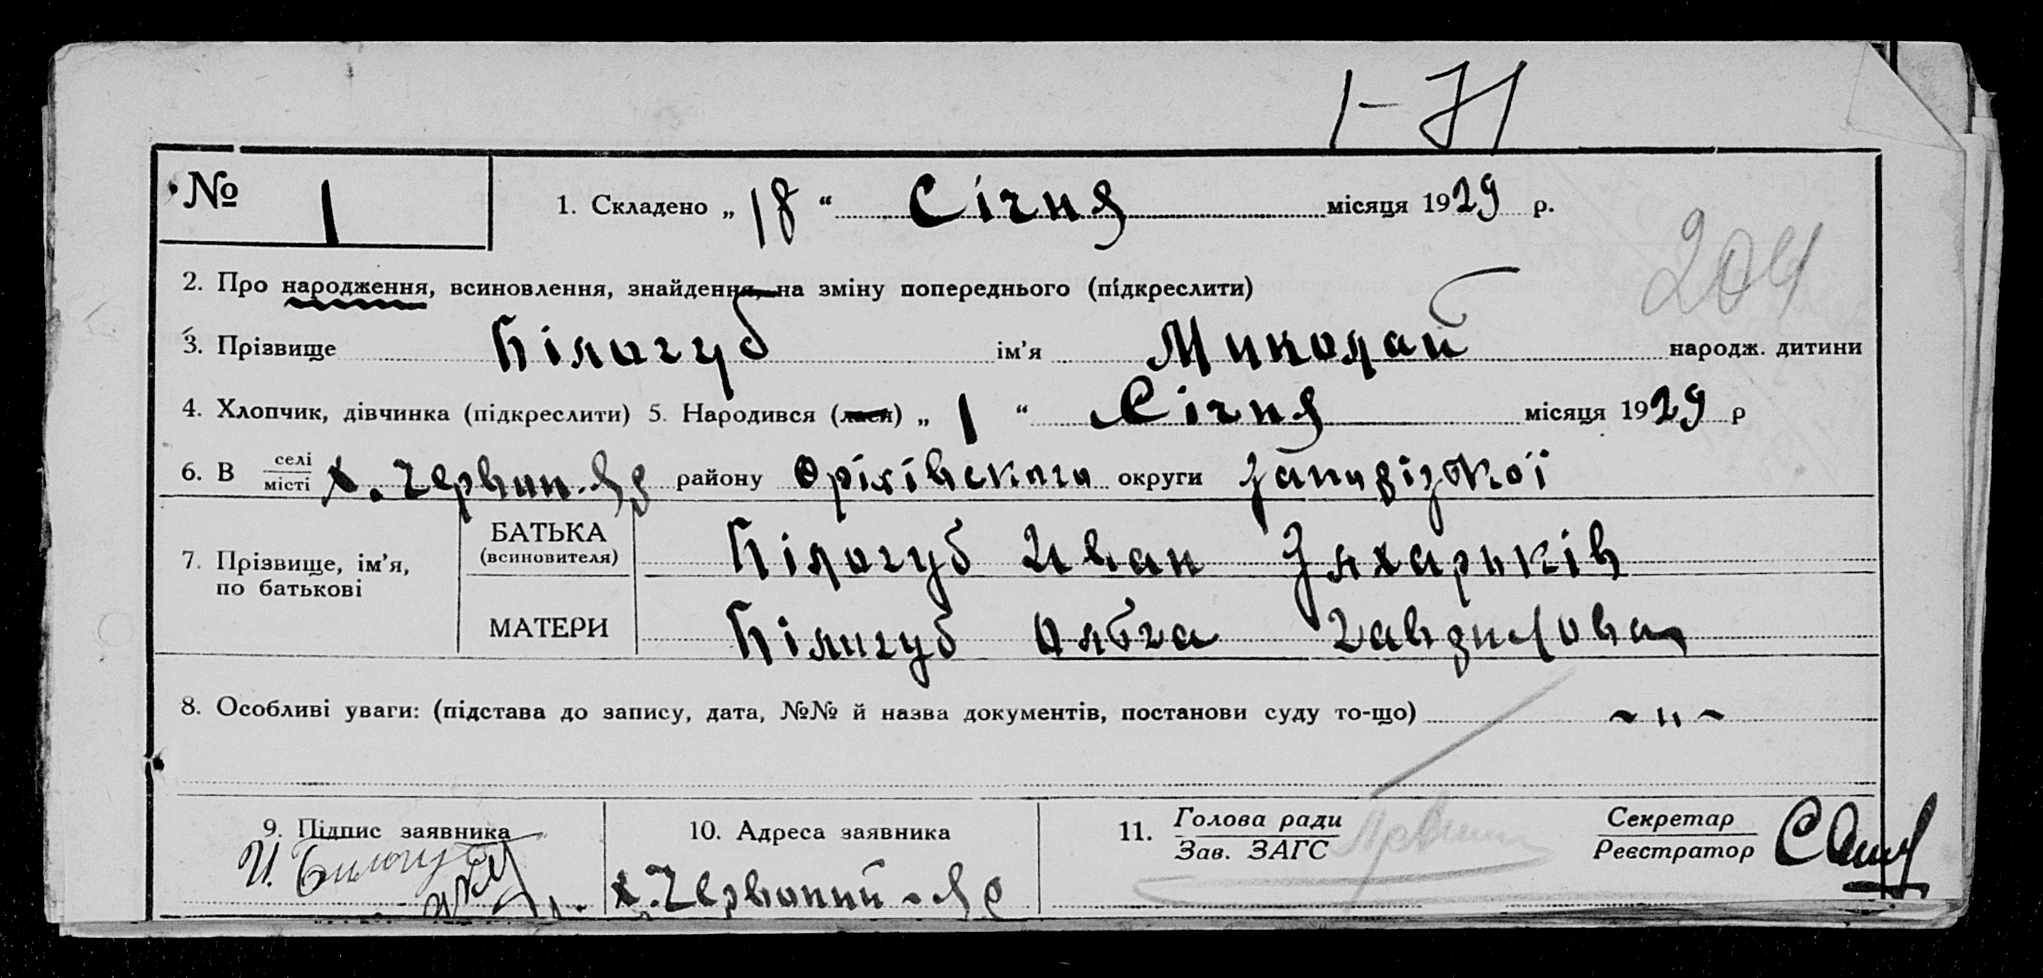 1-Н
№ 1
1. Складено „18“ Січня місяця 1929 р.
204
2. Про народження, всиновлення, знайдення, на зміну попереднього (підкреслити)
3. Прізвище Білогуб ім’я Миколай народж. дитини
4. Хлопчик, дівчинка (підкреслити) 5. Народився (лася) „1“ Січня місяця 1929 р
6. В селі місті х. Червон. Яр району Оріхівского округи Запорізкої
7. Прізвище, ім’я, по батькові
БАТЬКА (всиновителя) Білогуб Иван Захарьків
МАТЕРИ Білогуб Ольга Гаврилова
8. Особливі уваги: (підстава до запису, дата, №№ й назва документів, постанови суду то-що) ~ " ~
9. Підпис заявника
И. Билогуб
10. Адреса заявника
х. Червоний-Яр
11. Голова ради
Зав. ЗАГС
Секретар
Реєстратор